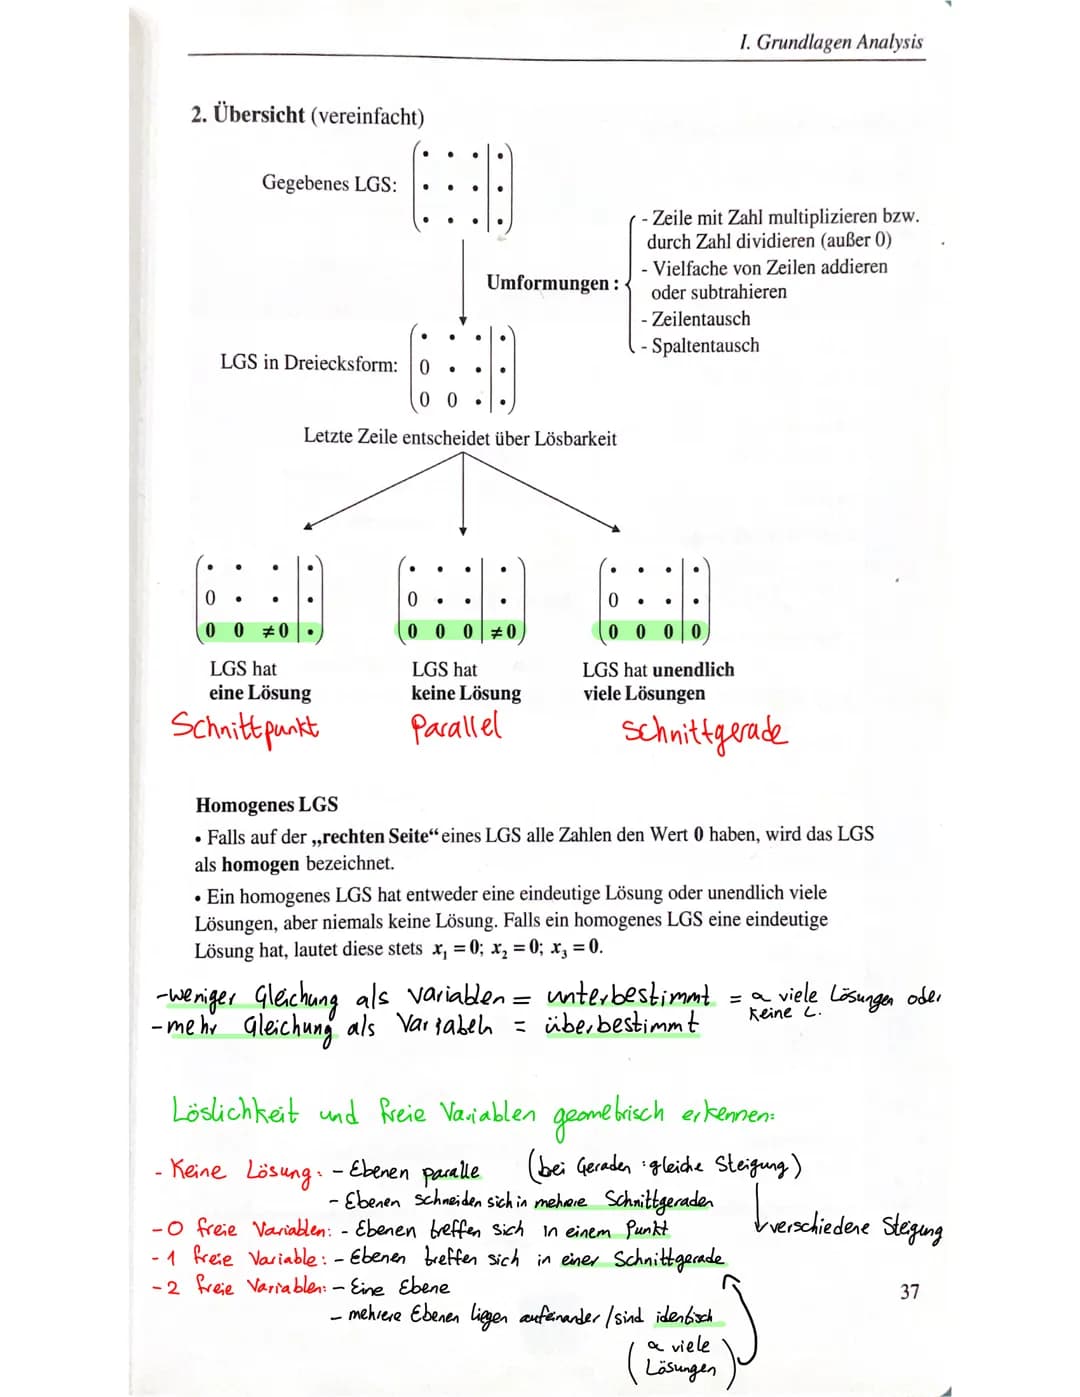 I. Grundlagen Analysis
2. Übersicht (vereinfacht)
Gegebenes LGS:
- Zeile mit Zahl multiplizieren bzw.
durch Zahl dividieren (außer 0)
- Vielfache von Zeilen addieren
Umformungen :
oder subtrahieren
- Zeilentausch
- Spaltentausch
LGS in Dreiecksform: 0 . . | .
0 0 . | .
Letzte Zeile entscheidet über Lösbarkeit
. . . | . . . . | . . . . | .
0 . . | . 0 . . | . 0 . . | .
0 0 ≠0 | . 0 0 0 | ≠0 0 0 0 | 0
LGS hat LGS hat LGS hat unendlich
eine Lösung keine Lösung viele Lösungen
Schnittpunkt Parallel Schnittgerade
Homogenes LGS
• Falls auf der „rechten Seite“ eines LGS alle Zahlen den Wert 0 haben, wird das LGS
als homogen bezeichnet.
• Ein homogenes LGS hat entweder eine eindeutige Lösung oder unendlich viele
Lösungen, aber niemals keine Lösung. Falls ein homogenes LGS eine eindeutige
Lösung hat, lautet diese stets x₁ = 0; x₂ = 0; x₃ = 0.
-weniger Gleichung als Variablen = unterbestimmt = ∞ viele Lösungen oder
keine L.
-mehr Gleichung als Variabeln = überbestimmt
Löslichkeit und freie Variablen geometrisch erkennen:
- Keine Lösung: - Ebenen paralle (bei Geraden : gleiche Steigung)
- Ebenen schneiden sich in mehere Schnittgeraden
verschiedene Steigung
- 0 freie Variablen: - Ebenen treffen sich in einem Punkt
- 1 freie Variable: - Ebenen treffen sich in einer Schnittgerade
- 2 freie Variablen: - Eine Ebene
37
- mehrere Ebenen liegen aufeinander / sind identisch
(∞ viele
Lösungen)